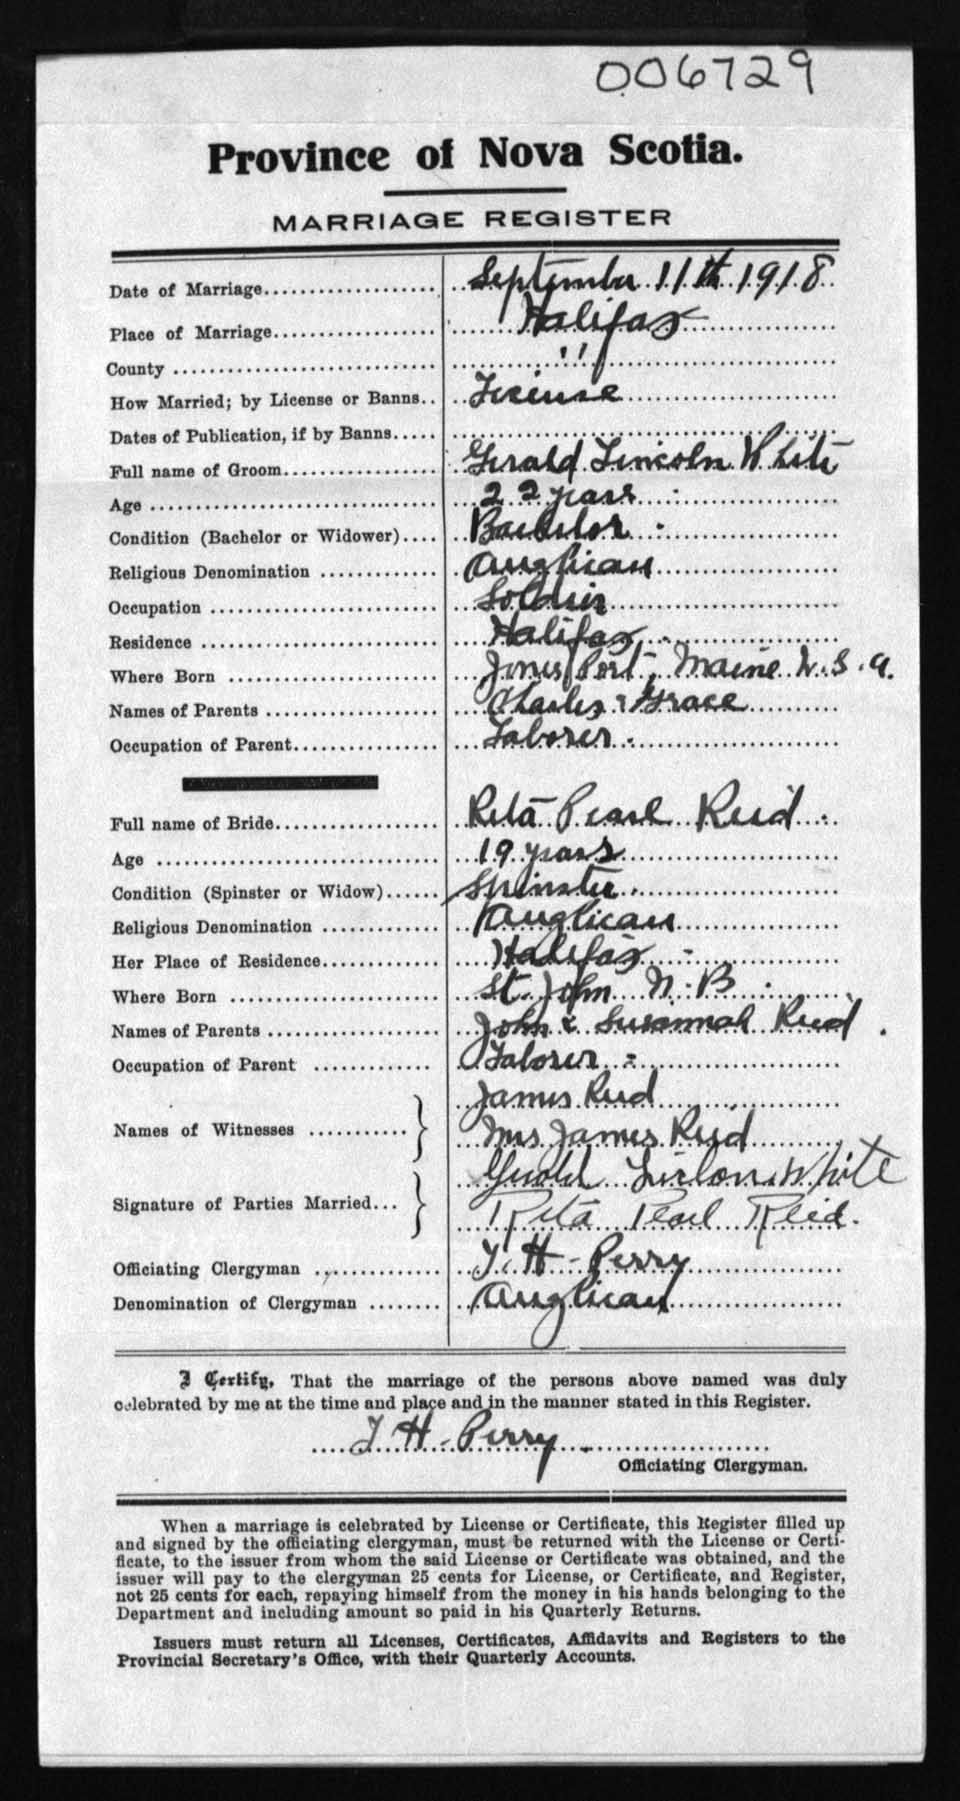 006729
Province of Nova Scotia.
MARRIAGE REGISTER
Date of Marriage September 11th 1918
Place of Marriage Halifax
County "
How Married; by License or Banns License
Dates of Publication, if by Banns
Full name of Groom Gerald Lincoln White
Age 22 years
Condition (Bachelor or Widower) Bachelor
Religious Denomination Anglican
Occupation Soldier
Residence Halifax
Where Born Jones Port, Maine U.S.A.
Names of Parents Charles & Grace
Occupation of Parent Laborer
Full name of Bride Rita Pearl Reid
Age 19 years
Condition (Spinster or Widow) Spinster
Religious Denomination Anglican
Her Place of Residence Halifax
Where Born St. John N.B.
Names of Parents John & Susannah Reid
Occupation of Parent Laborer
James Reid
Names of Witnesses
Mrs James Reid
Gerald Lincoln White
Signature of Parties Married
Rita Pearl Reid.
Officiating Clergyman T. H. Perry
Denomination of Clergyman Anglican
I Certify, That the marriage of the persons above named was duly
celebrated by me at the time and place and in the manner stated in this Register.
T. H. Perry
Officiating Clergyman.
When a marriage is celebrated by License or Certificate, this Register filled up
and signed by the officiating clergyman, must be returned with the License or Certi-
ficate, to the issuer from whom the said License or Certificate was obtained, and the
issuer will pay to the clergyman 25 cents for License, or Certificate, and Register,
not 25 cents for each, repaying himself from the money in his hands belonging to the
Department and including amount so paid in his Quarterly Returns.
Issuers must return all Licenses, Certificates, Affidavits and Registers to the
Provincial Secretary's Office, with their Quarterly Accounts.